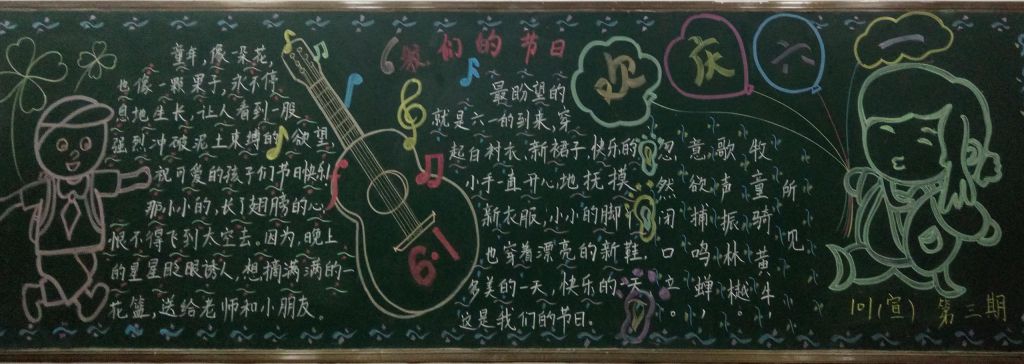 我们的节日
童年,像一朵花,
也像一颗果子,永不停
息地生长,让人看到一股
强烈冲破泥土束缚的欲望
祝可爱的孩子们节日快乐!
那小小的,长了翅膀的心,
恨不得飞到天空去。因为,晚上
的星星眨眼诱人,想摘满满的一
花篮,送给老师和小朋友。
6·1
最盼望的
就是六一的到来,穿
起白衬衣、新裙子,快乐的
小手一直开心地抚摸
新衣服,小小的脚丫
也穿着漂亮的新鞋,
多美的一天,快乐的一天
这是我们的节日。
欢庆六一
所见
牧童骑黄牛,
歌声振林樾,
意欲捕鸣蝉,
忽然闭口立。
101(宣) 第三期